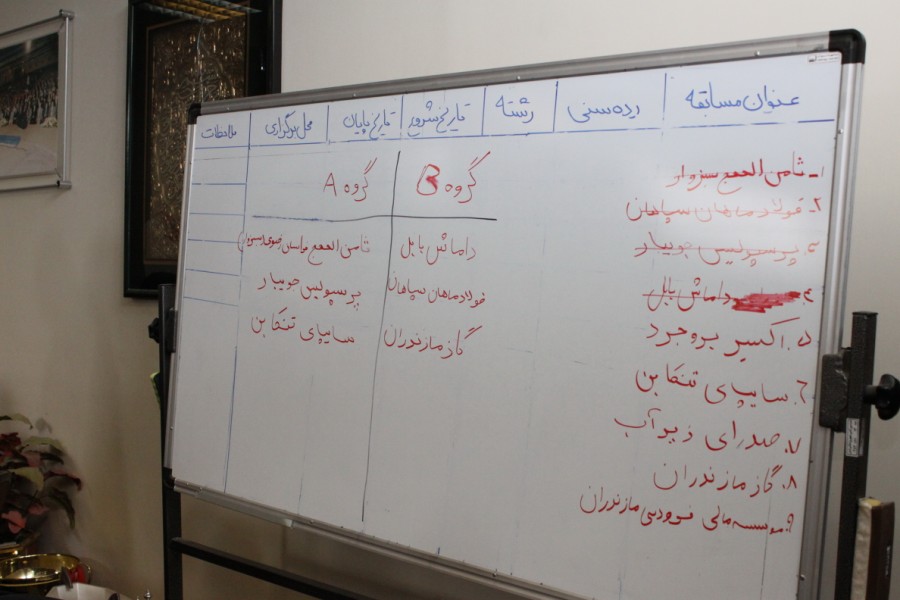 عنوان مسابقه	رده سنی	رشته	تاریخ شروع	تاریخ پایان	محل برگزاری	ملاحظات
۱- ثامن الحجج سبزوار
۲- فولاد ماهان سپاهان
۳. پرسپولیس جویبار
۴. داماش بابل
۵. اکسیر بروجرد
۶. سایپای تنکابن
۷. صدرای زیرآب
۸. گاز مازندران
۹. موسسه مالی فردوسی مازندران
گروه B	گروه A
داماش بابل	ثامن الحجج خراسان رضوی (سبزوار)
فولاد ماهان سپاهان	پرسپولیس جویبار
گاز مازندران	سایپای تنکابن